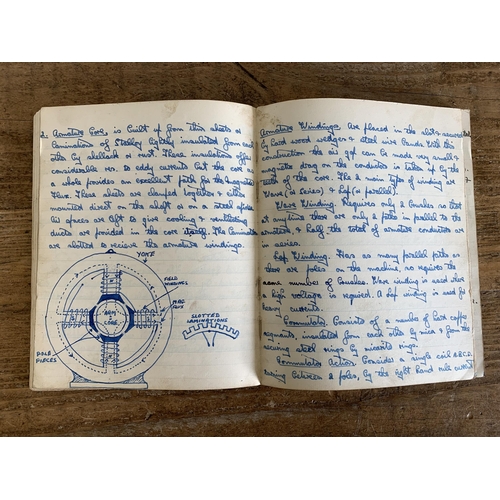 2. Armature Core is built up from thin sheets or
Laminations of Stalloy lightly insulated from each
other by shellack or rust. These insulations offer
considerable res. to eddy currents but the core as
a whole provides an excellent path for the magnetic
Flux. These sheets are clamped together & either
mounted direct on the shaft or on steel spider
Air spaces are left to give cooling & ventilating
ducts are provided in the core itself. The Laminations
are slotted to recieve the armature windings.
YOKE
FIELD
WINDINGS
MAG.
FLUX
ARM
CORE
SLOTTED
LAMINATIONS
POLE
PIECES
Armature Windings. Are placed in the slots & secured
by hard wood wedges & steel wire bands With this
construction the air gap can be made very small &
magnetic drag on the conductors is taken up by the
teeth of the core. The 2 main types of winding are
Wave (or series) & Lap (or parallel).
Wave Winding. Requires only 2 brushes so that
at any time there are only 2 paths in parallel to the
armature, & half the total of armature conductors are
in series.
Lap Winding. Has as many parallel paths as
there are poles on the machine, so requires the
same number of brushes. Wave winding is used where
a high voltage is required. A Lap winding is used for
heavy currents.
Commutator. Consists of a number of hard copper
segments, insulated from each other by mica & from the
securing steel rings by micanite rings.
Commutator Action. Consider a single coil A.B.C.D.
between 2 poles, by the right hand rule current